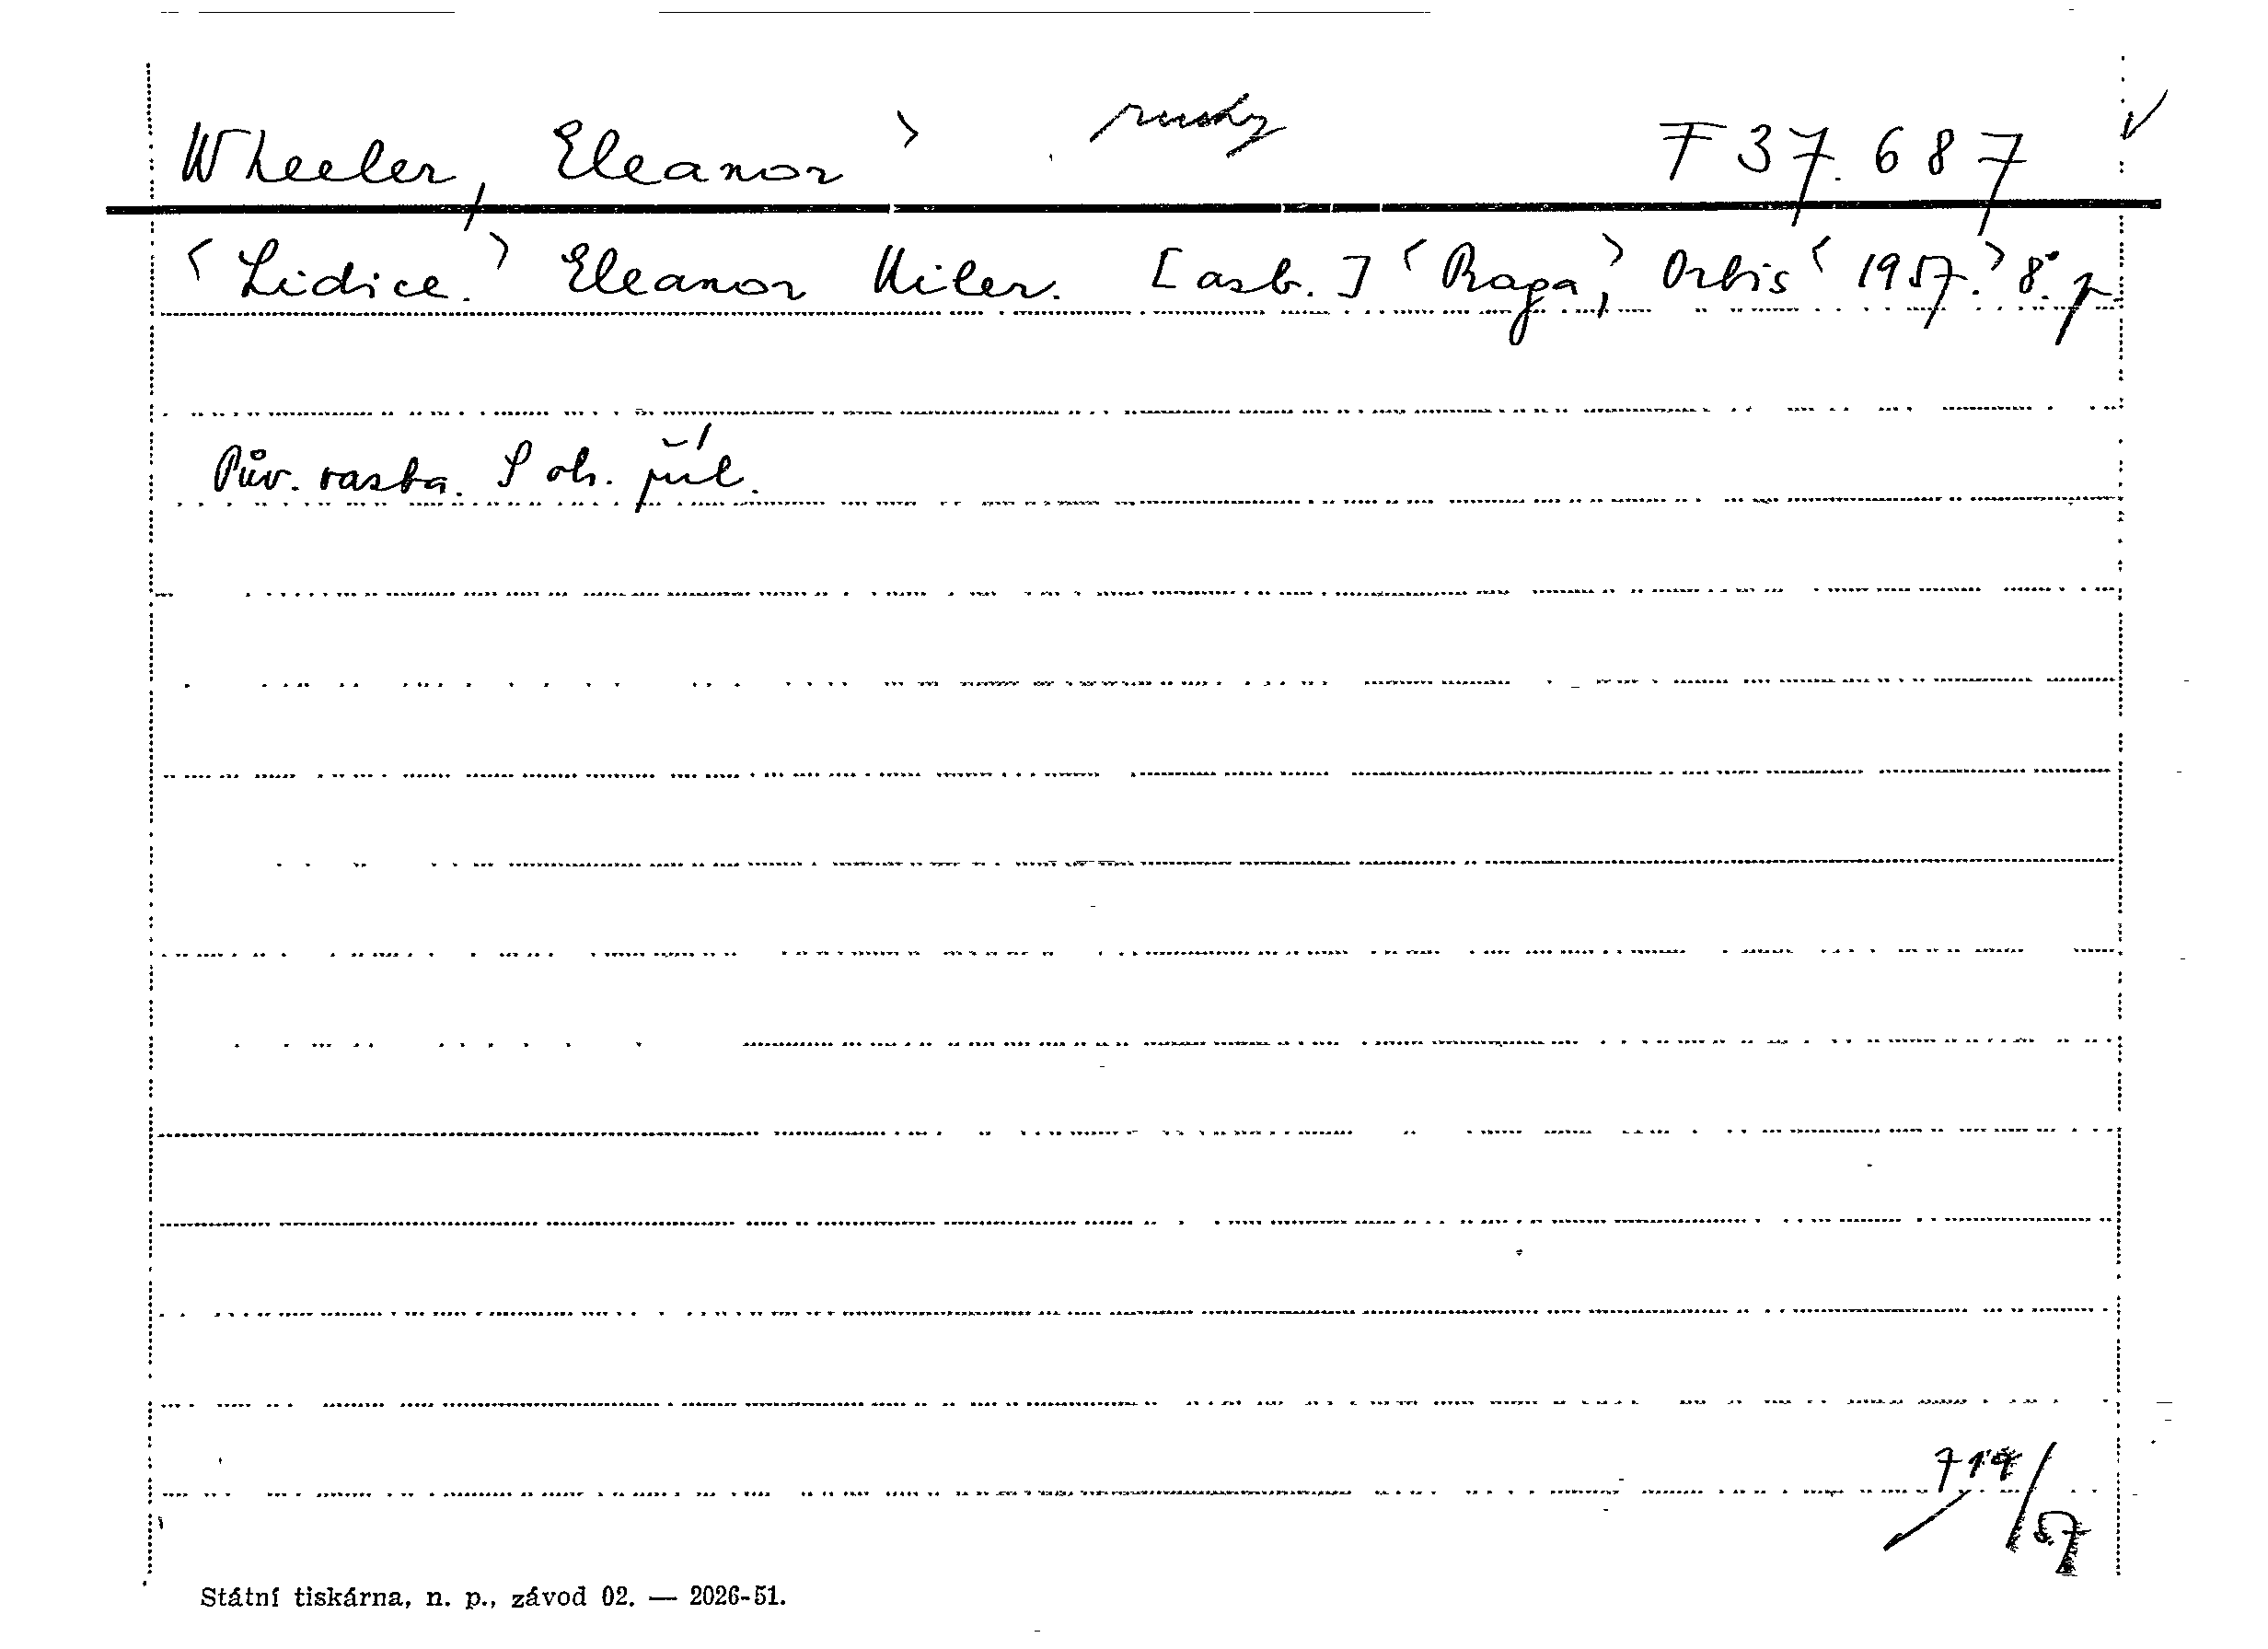 Wheeler, Eleanor › rusky F 37.687 ✓
‹ Lidice. › Eleanor Uiler. [asb.] ‹ Praga, › Orbis ‹ 1957. › 8°. p.
Pův. vazba. S ob. příl.
719/57
Státní tiskárna, n. p., závod 02. — 2026-51.